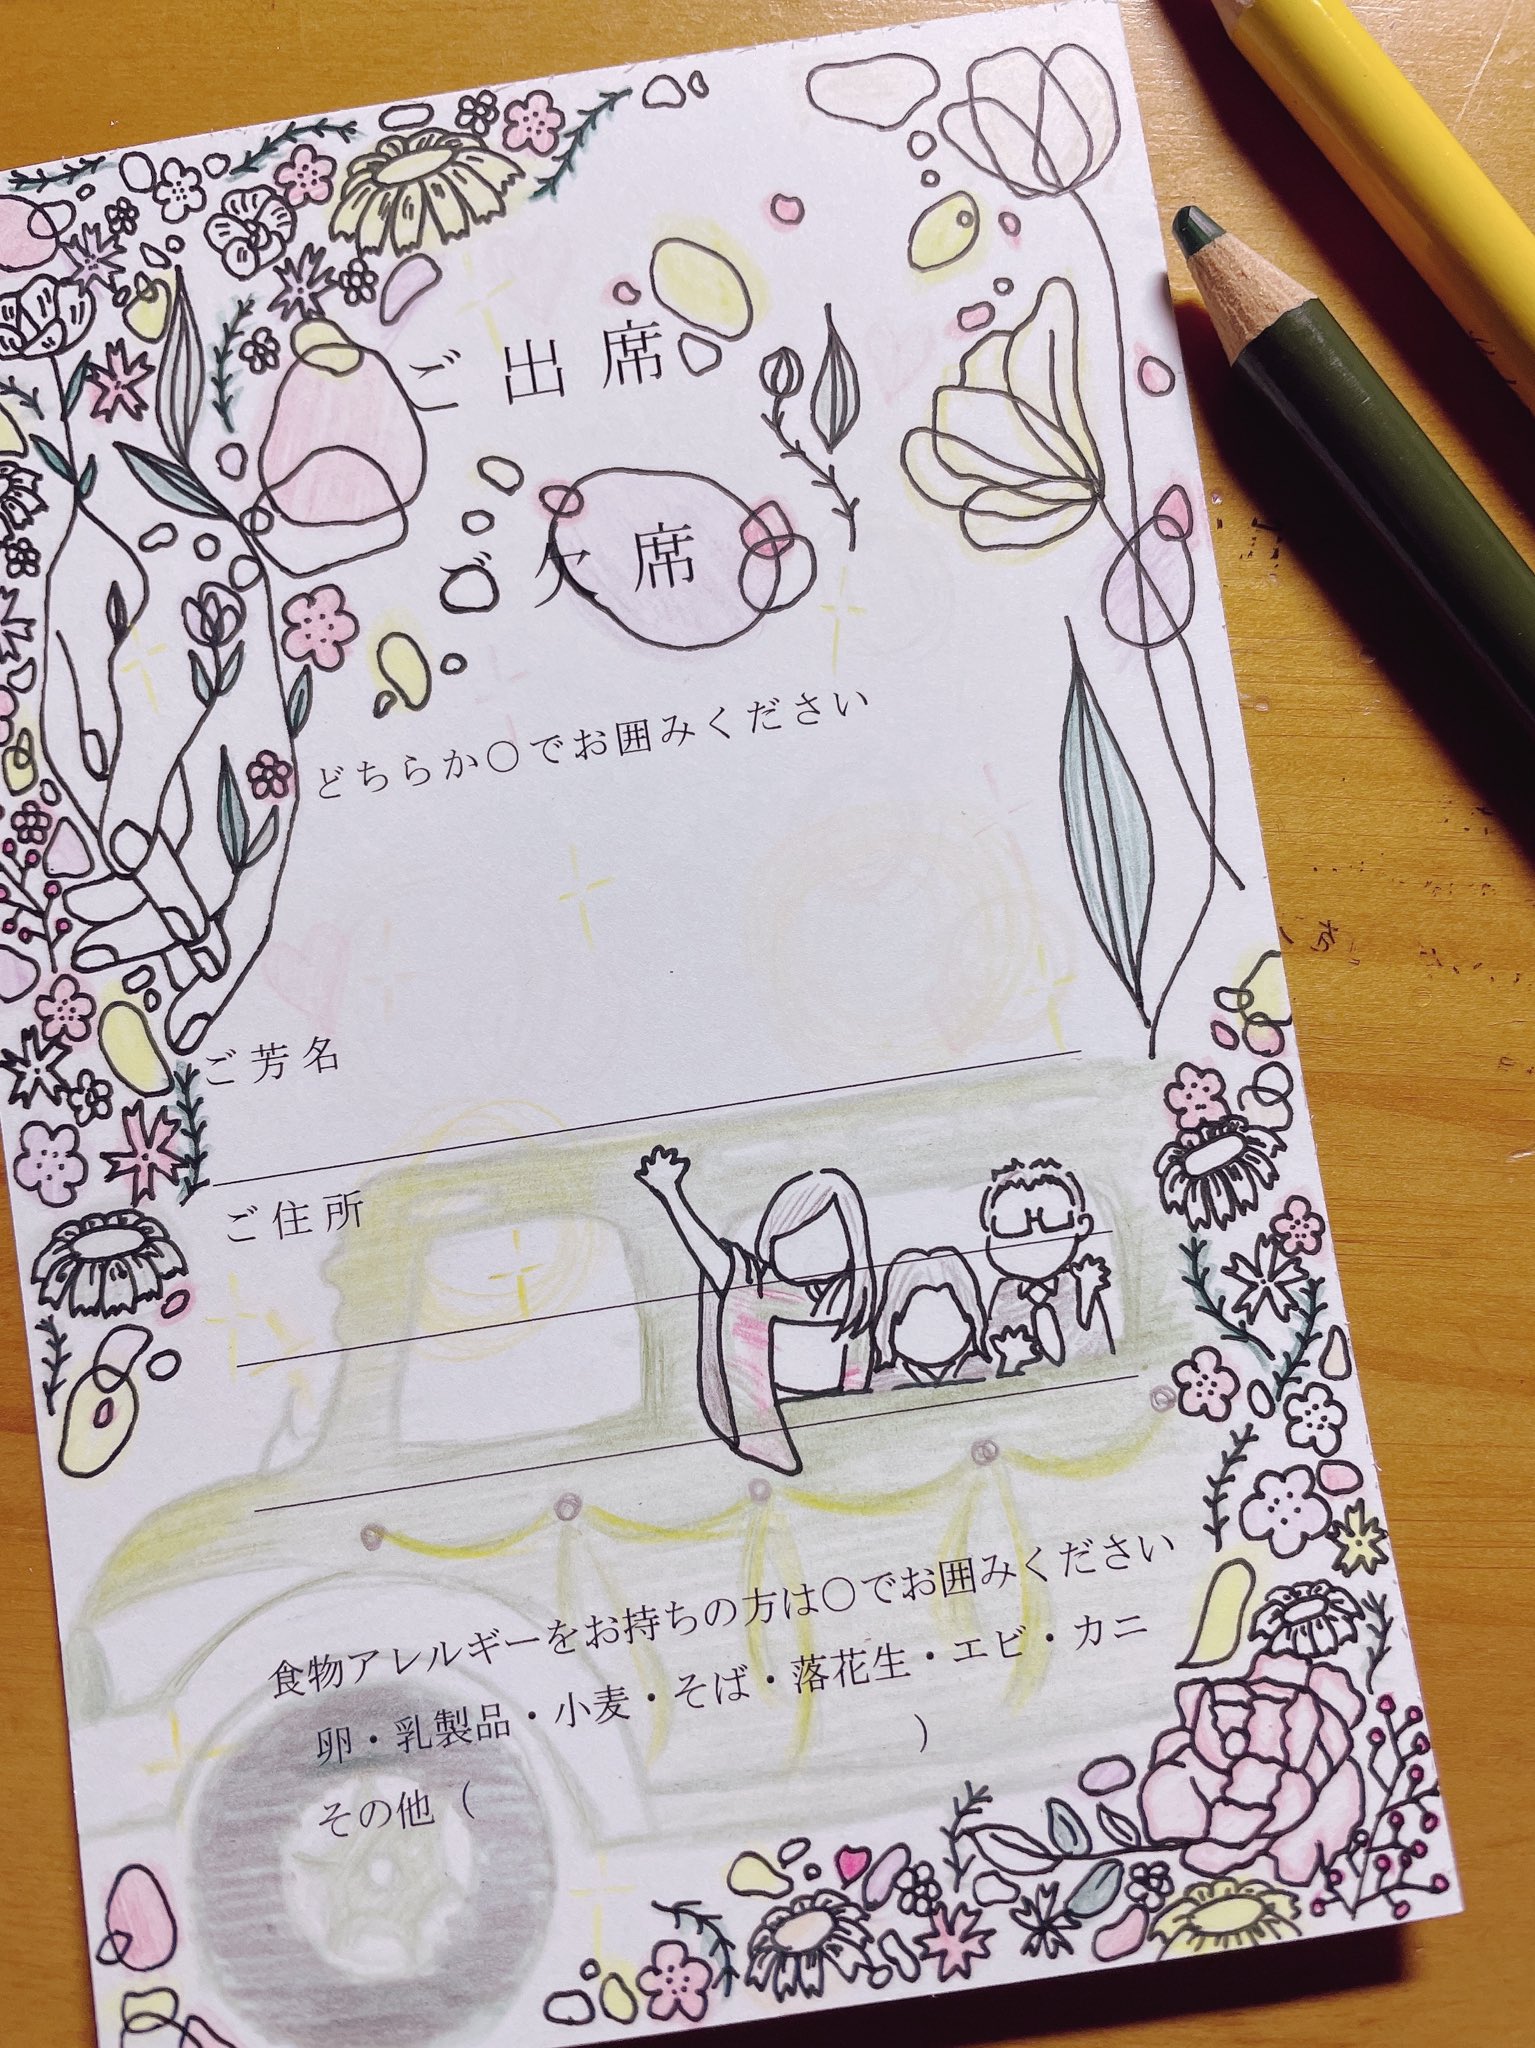 ご出席
ご欠席
どちらか〇でお囲みください
ご芳名
ご住所
食物アレルギーをお持ちの方は〇でお囲みください
卵・乳製品・小麦・そば・落花生・エビ・カニ
その他（　　　）